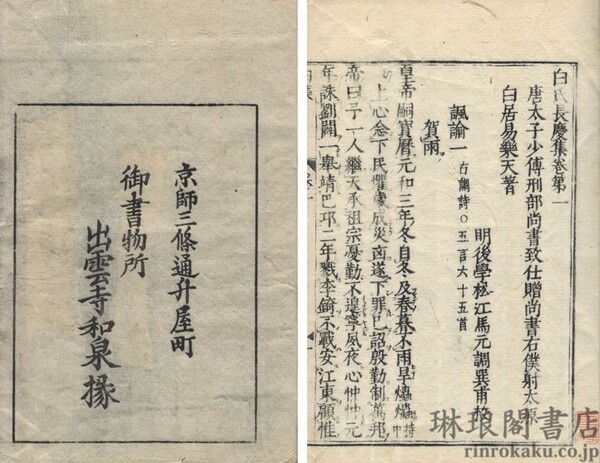 白氏長慶集卷第一
唐太子少傅刑部尚書致仕贈尚書右僕射太原
白居易樂天著
明後學松江馬元調巽甫校
諷諭一 古調詩〇五言六十五首
賀雨
皇帝嗣寶曆元和三年冬自冬及春暮不雨旱爞爞
上心念下民懼歲成災凶遂下罪己詔殷勤制萬邦
帝曰予一人繼天承祖宗憂勤不遑寧夙夜心忡忡元
年誅劉闢一舉靖巴邛二年戮李錡不戰安江東顧惟
京師三條通升屋町
御書物所
出雲寺和泉掾
琳琅閣書店
rinrokaku.co.jp